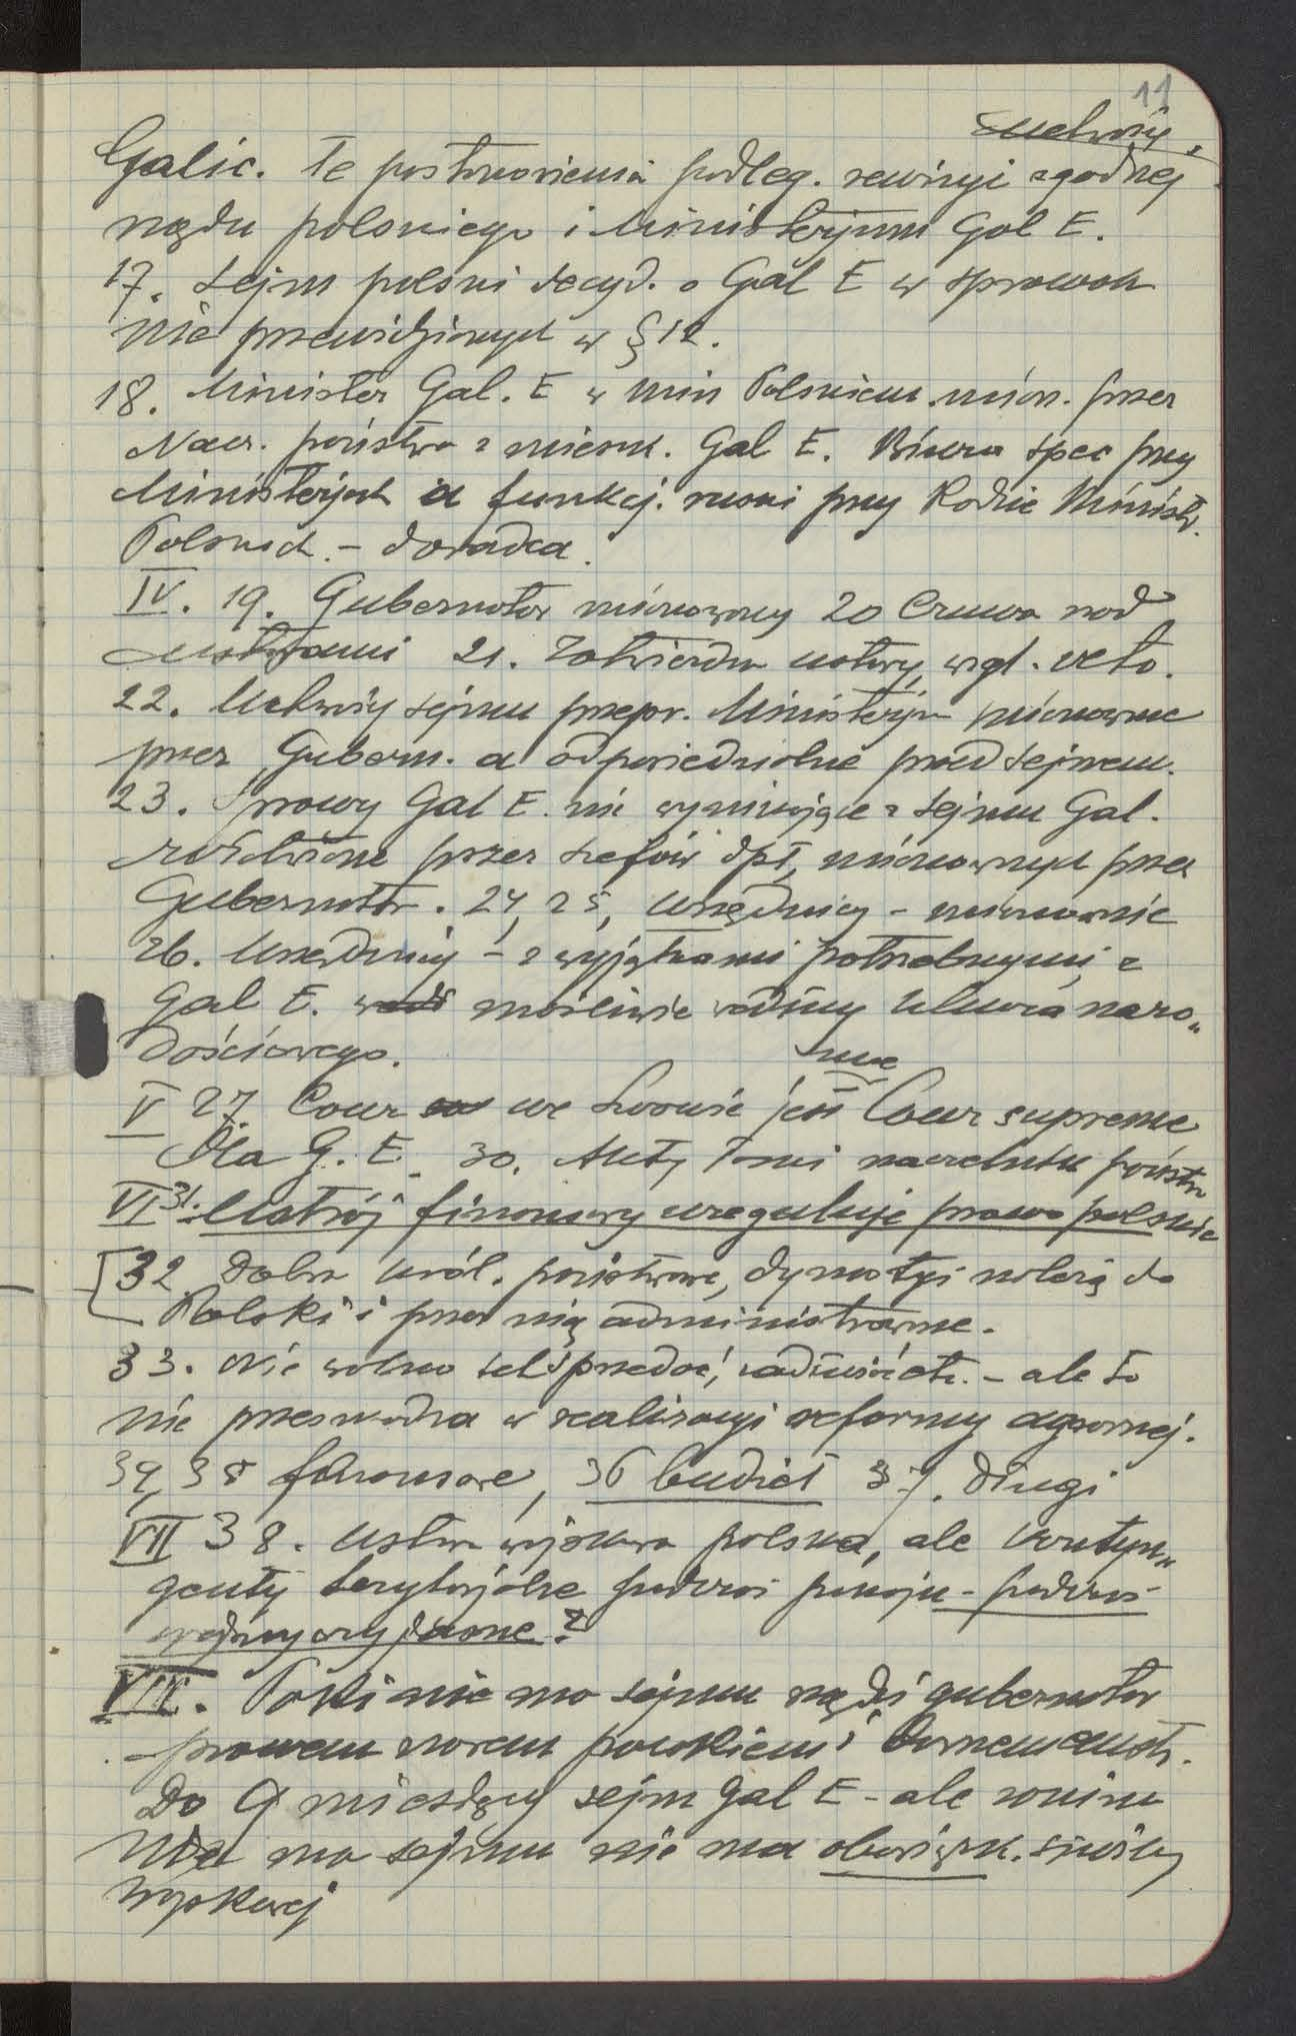 11
uchwały
Galic. Te postanowienia podleg. rewizyi zgodnej
rządu polskiego i Ministerjum Gal E.
17. Sejm polski decyd. o Gal E w sprawach
nie przewidzianych w § 12.
18. Minister Gal. E w Min Polskiem mian. przez
Nacz. państwa z mieszk. Gal E. Biura spec przy
Ministerjach a funkcj. ruski przy Radzie Ministr.
Polskich. – doradca.
IV. 19. Gubernator mianowany 20 Czuwa nad
ustawami 21. Zatwierdza ustawy, wzgl. veto.
22. Uchwały sejmu przepr. Ministerja mianowane
przez Gubern. a odpowiedzialne przed sejmem.
23. Sprawy Gal E. nie wynikające z sejmu Gal.
przez szefów dpt, mianowanych przez
Gubernator. 24, 25, urzędnicy – mianowanie
26. Urzędnicy – z wyjątkami potrzebnymi, z
Gal E. możliwie według klucza naro„
dościowego.
sme
V 27. Cour we Lwowie jest Cour supreme
Dla G. E. 30. Akty łaski naczelnik państw
VI 31. Ustrój finansowy ureguluje prawo polskie
32 Dobra król. państwowe, dynastyi należą do
Polski i przez nią administrowane.
33. Nie wolno ich sprzedać, zadłużać etc. – ale to
nie przeszkadza w realizacyi reformy agrarnej.
34, 35 finansowe, 36 budżet 37. Długi
VII 38. Ustawa wojskowa polska, ale kontyn„
genty terytorjalne podczas pokoju – podczas
wojny czy jasne?
VIII. Póki nie ma sejmu rządzi gubernator
– prawem nowem polskiem i dawnem austr.
Do 9 miesięcy sejm Gal E – ale zanim
nie ma sejmu nie ma obowiązk. służby
wojskowej